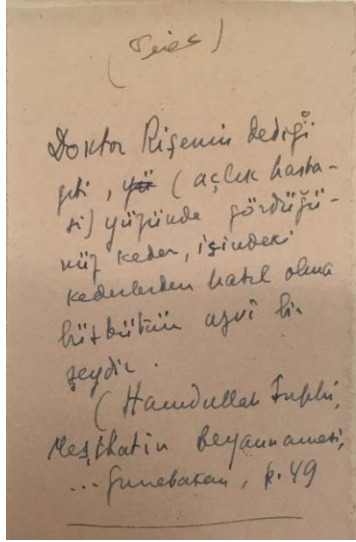 Doktor Rişenin dediği
gibi, yü (açlık hasta-
sı) yüzünde gördüğü-
nüz keder, içindeki
kederlerden hasıl olma
büsbütün uzvî bir
şeydir.
(Hamdullah Suphi,
Meşihatin Beyannamesi,
... Günebakan, s. 49